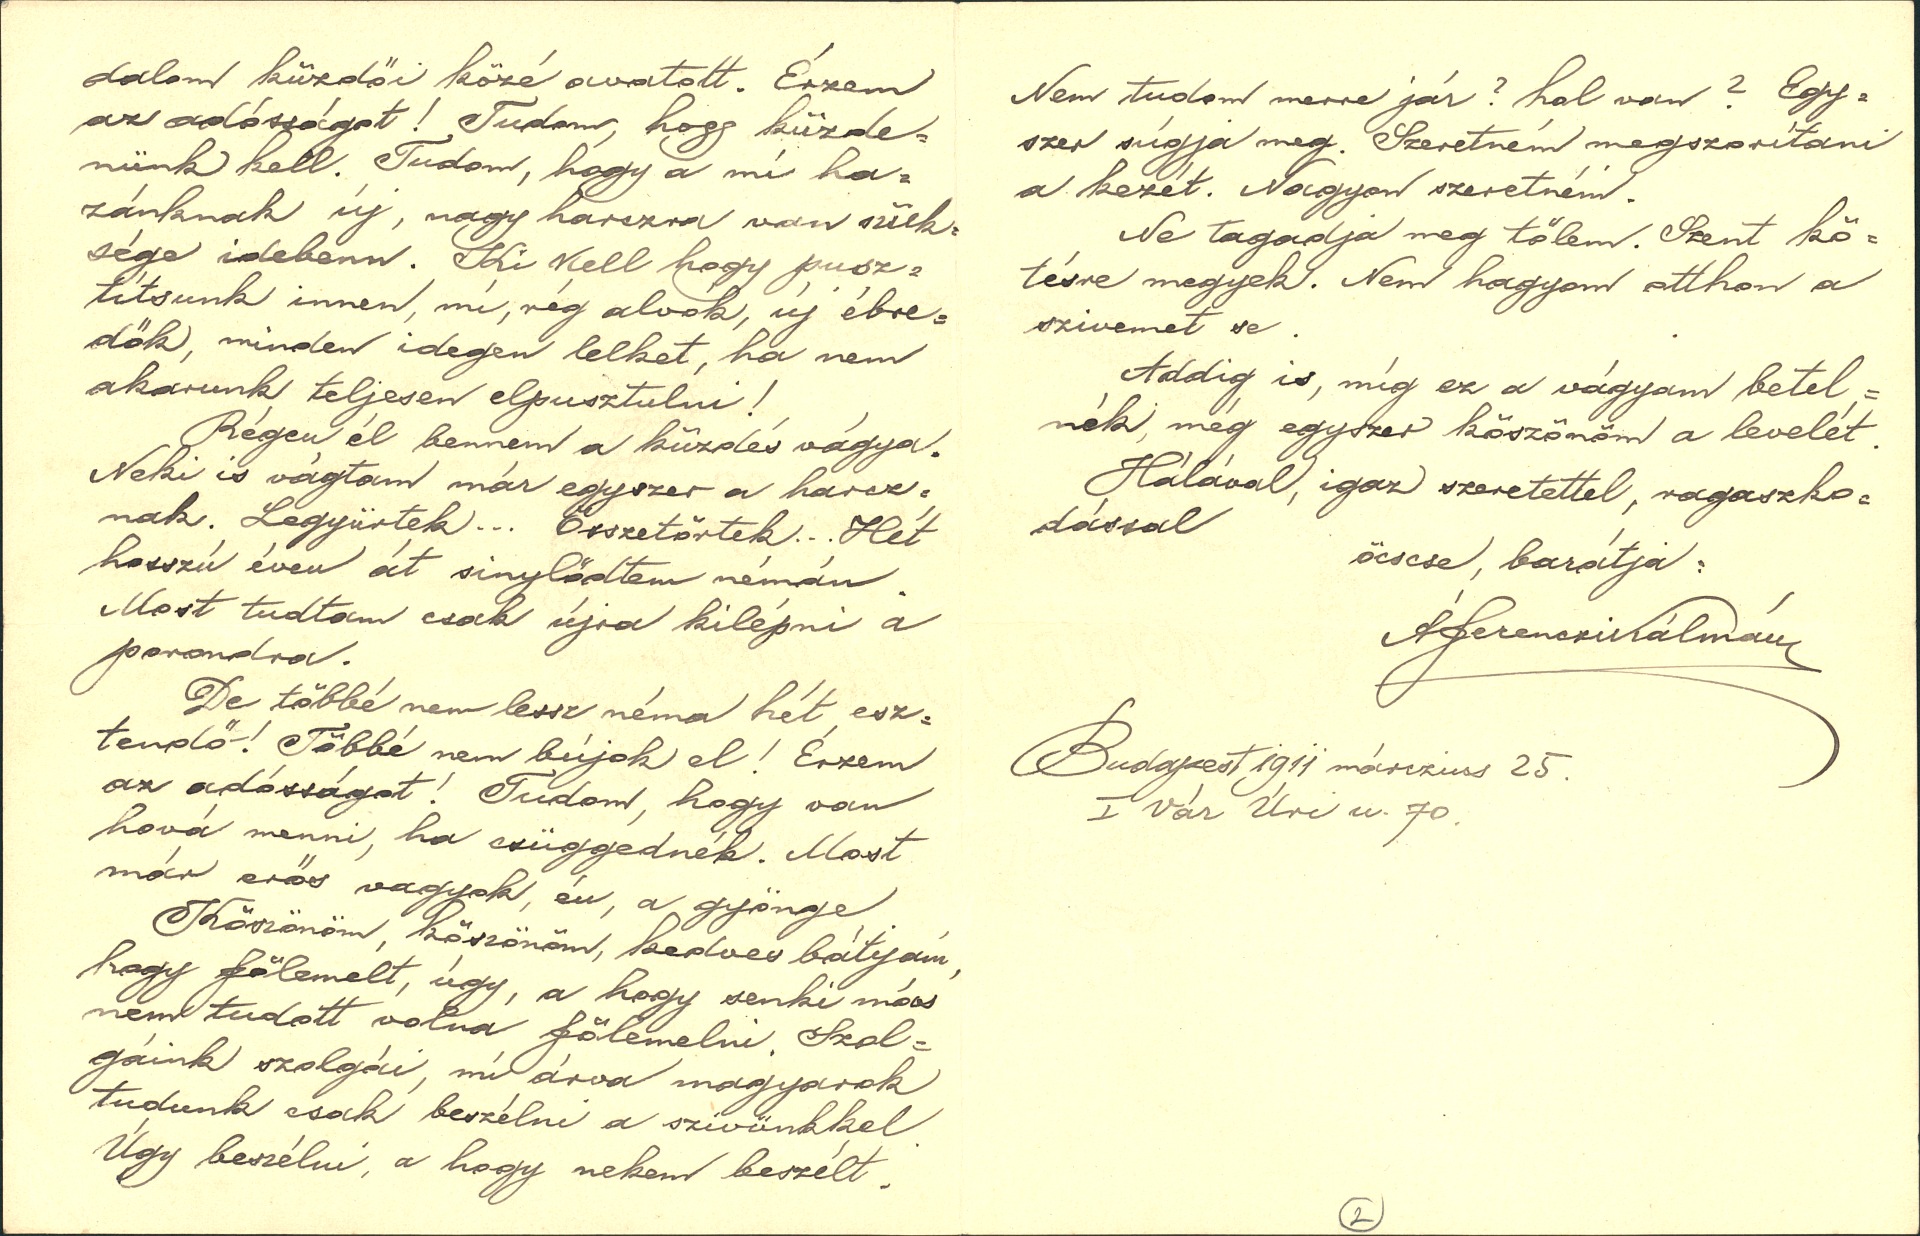 dalom küzdői közé avatott. Érzem
az adósságot! Tudom, hogy küzde=
nünk kell. Tudom, hogy a mi ha=
zánknak új, nagy harczra van szük=
sége idebenn. Ki kell hogy pusz=
títsunk innen, mi, rég alvók, új ébre=
dők, minden idegen lelket, ha nem
akarunk teljesen elpusztulni!
Régen él bennem a küzdés vágya.
Neki is vágtam már egyszer a harcz=
nak. Legyűrtek... Összetörtek... Hét
hosszú éven át sinylődtem némán.
Most tudtam csak újra kilépni a
porondra.
De többé nem lessz néma hét esz=
tendő! Többé nem bújok el! Érzem
az adósságot! Tudom, hogy van
hová menni, ha csüggednék. Most
már erős vagyok, én, a gyönge
Köszönöm, köszönöm, kedves bátyám,
hogy fölemelt, úgy, a hogy senki más
nem tudott volna fölemelni. Szol=
gáink szolgái, mi árva magyarok
tudunk csak beszélni a szivünkkel.
Úgy beszélni, a hogy nekem beszélt.
Nem tudom merre jár? hol van? Egy=
szer súgja meg. Szeretném megszorítani
a kezét. Nagyon szeretném.
Ne tagadja meg tőlem. Szent kö=
tésre megyek. Nem hagyom otthon a
szivemet se.
Addig is, míg ez a vágyam betel=
nék, még egyszer köszönöm a levelét.
Hálával, igaz szeretettel, ragaszko=
dással
öcscse, barátja:
Á Ferenczi Kálmán
Budapest, 1911 márczius 25.
I Vár Úri u. 70.
2